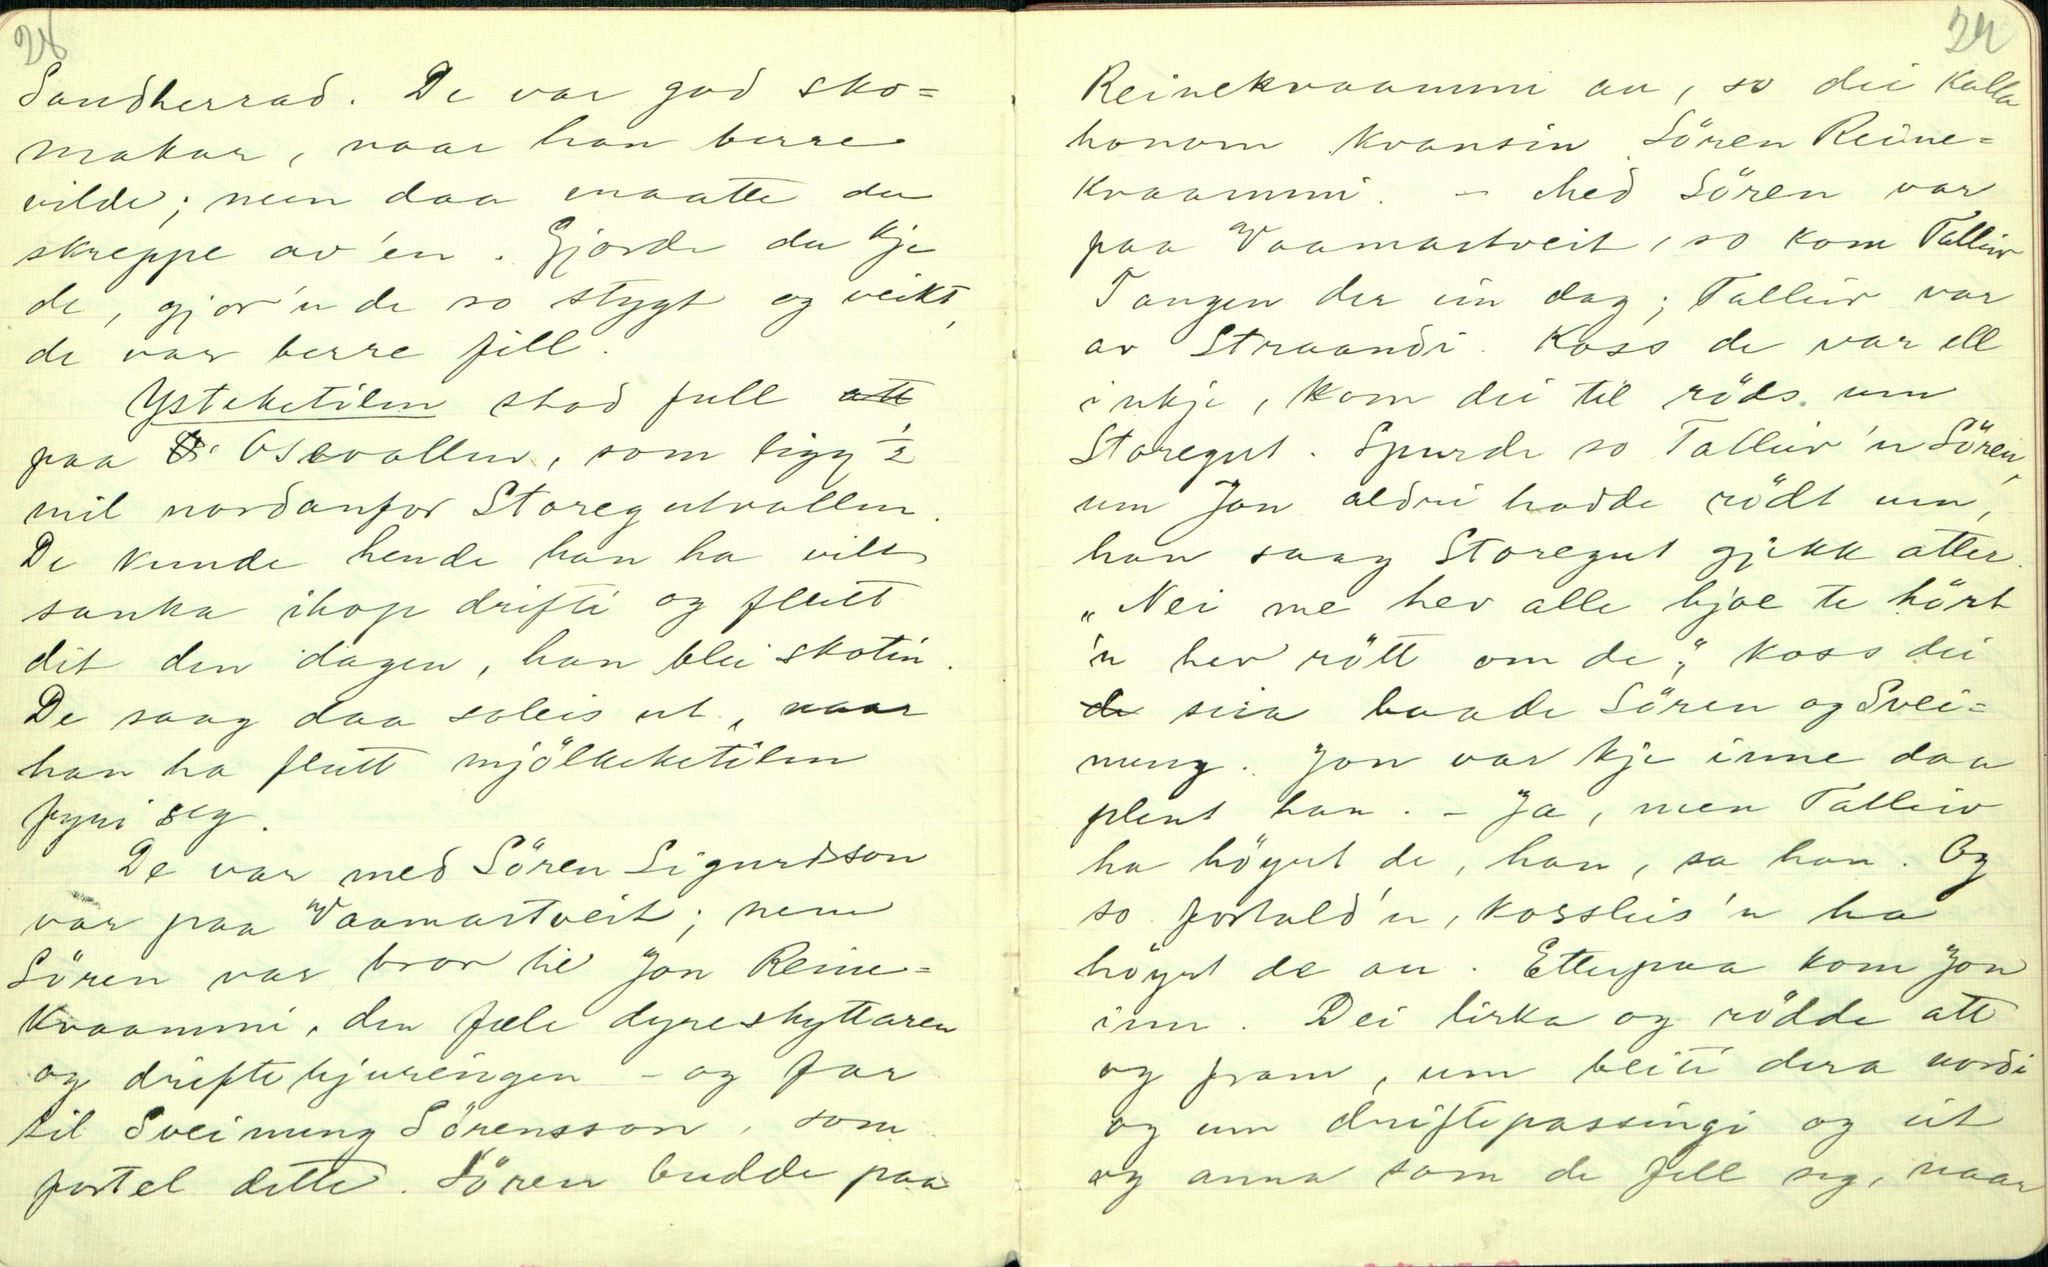 28
Sandherrad. De var god sko=
makar, naar han berre
vilde; men daa maatte du
skreppe av 'en. Gjorde du kje
de, gjor 'n de so stygt og veikt,
de var berre fill.
Ysteketilen stod full att
paa Osevollen, som ligg ½
mil nordanfor Storegutvollen.
De kunde hende han ha vilt
sanka ihop drifti og flutt
dit den dagen, han blei skotin.
De saag daa soleis ut, naar
han ha flutt mjölkeketilen
fyri seg.
De var med Sören Sigurdsson
var paa Vaamartveit; men
Sören var bror til Jon Reine=
kvaammi, den fæle dyreskyttaren
og driftehjuringen - og far
til Sveinung Sörensson, som
fortel dette. Sören budde paa
29
Reinekvaammi au, so dei kalla
honom kvansin Sören Reine=
kvaammi. - Med Sören var
paa Vaamartveit, so kom Talleiv
Tangen der ein dag; Talleiv var
av Straandi. Koss de var ell
inkje, kom dei til röds um
Storegut. Spurde so Talleiv 'n Sören,
um Jon aldri hadde rödt um,
han saag Storegut gjekk atter.
"Nei me hev alle hjoe te hört
'n hev rött om de", koss dei
de seia baade Sören og Svei=
nung. Jon var kje inne daa
plent han. - Ja, men Talleiv
ha höyrt de, han, sa han. Og
so fortald 'n, korsleis 'n ha
höyrt de au. Etterpaa kom Jon
inn. Dei lirka og rödde att
og fram, um beiti dera nordi
og um driftepassingi og eit
og anna som de fell seg, naar